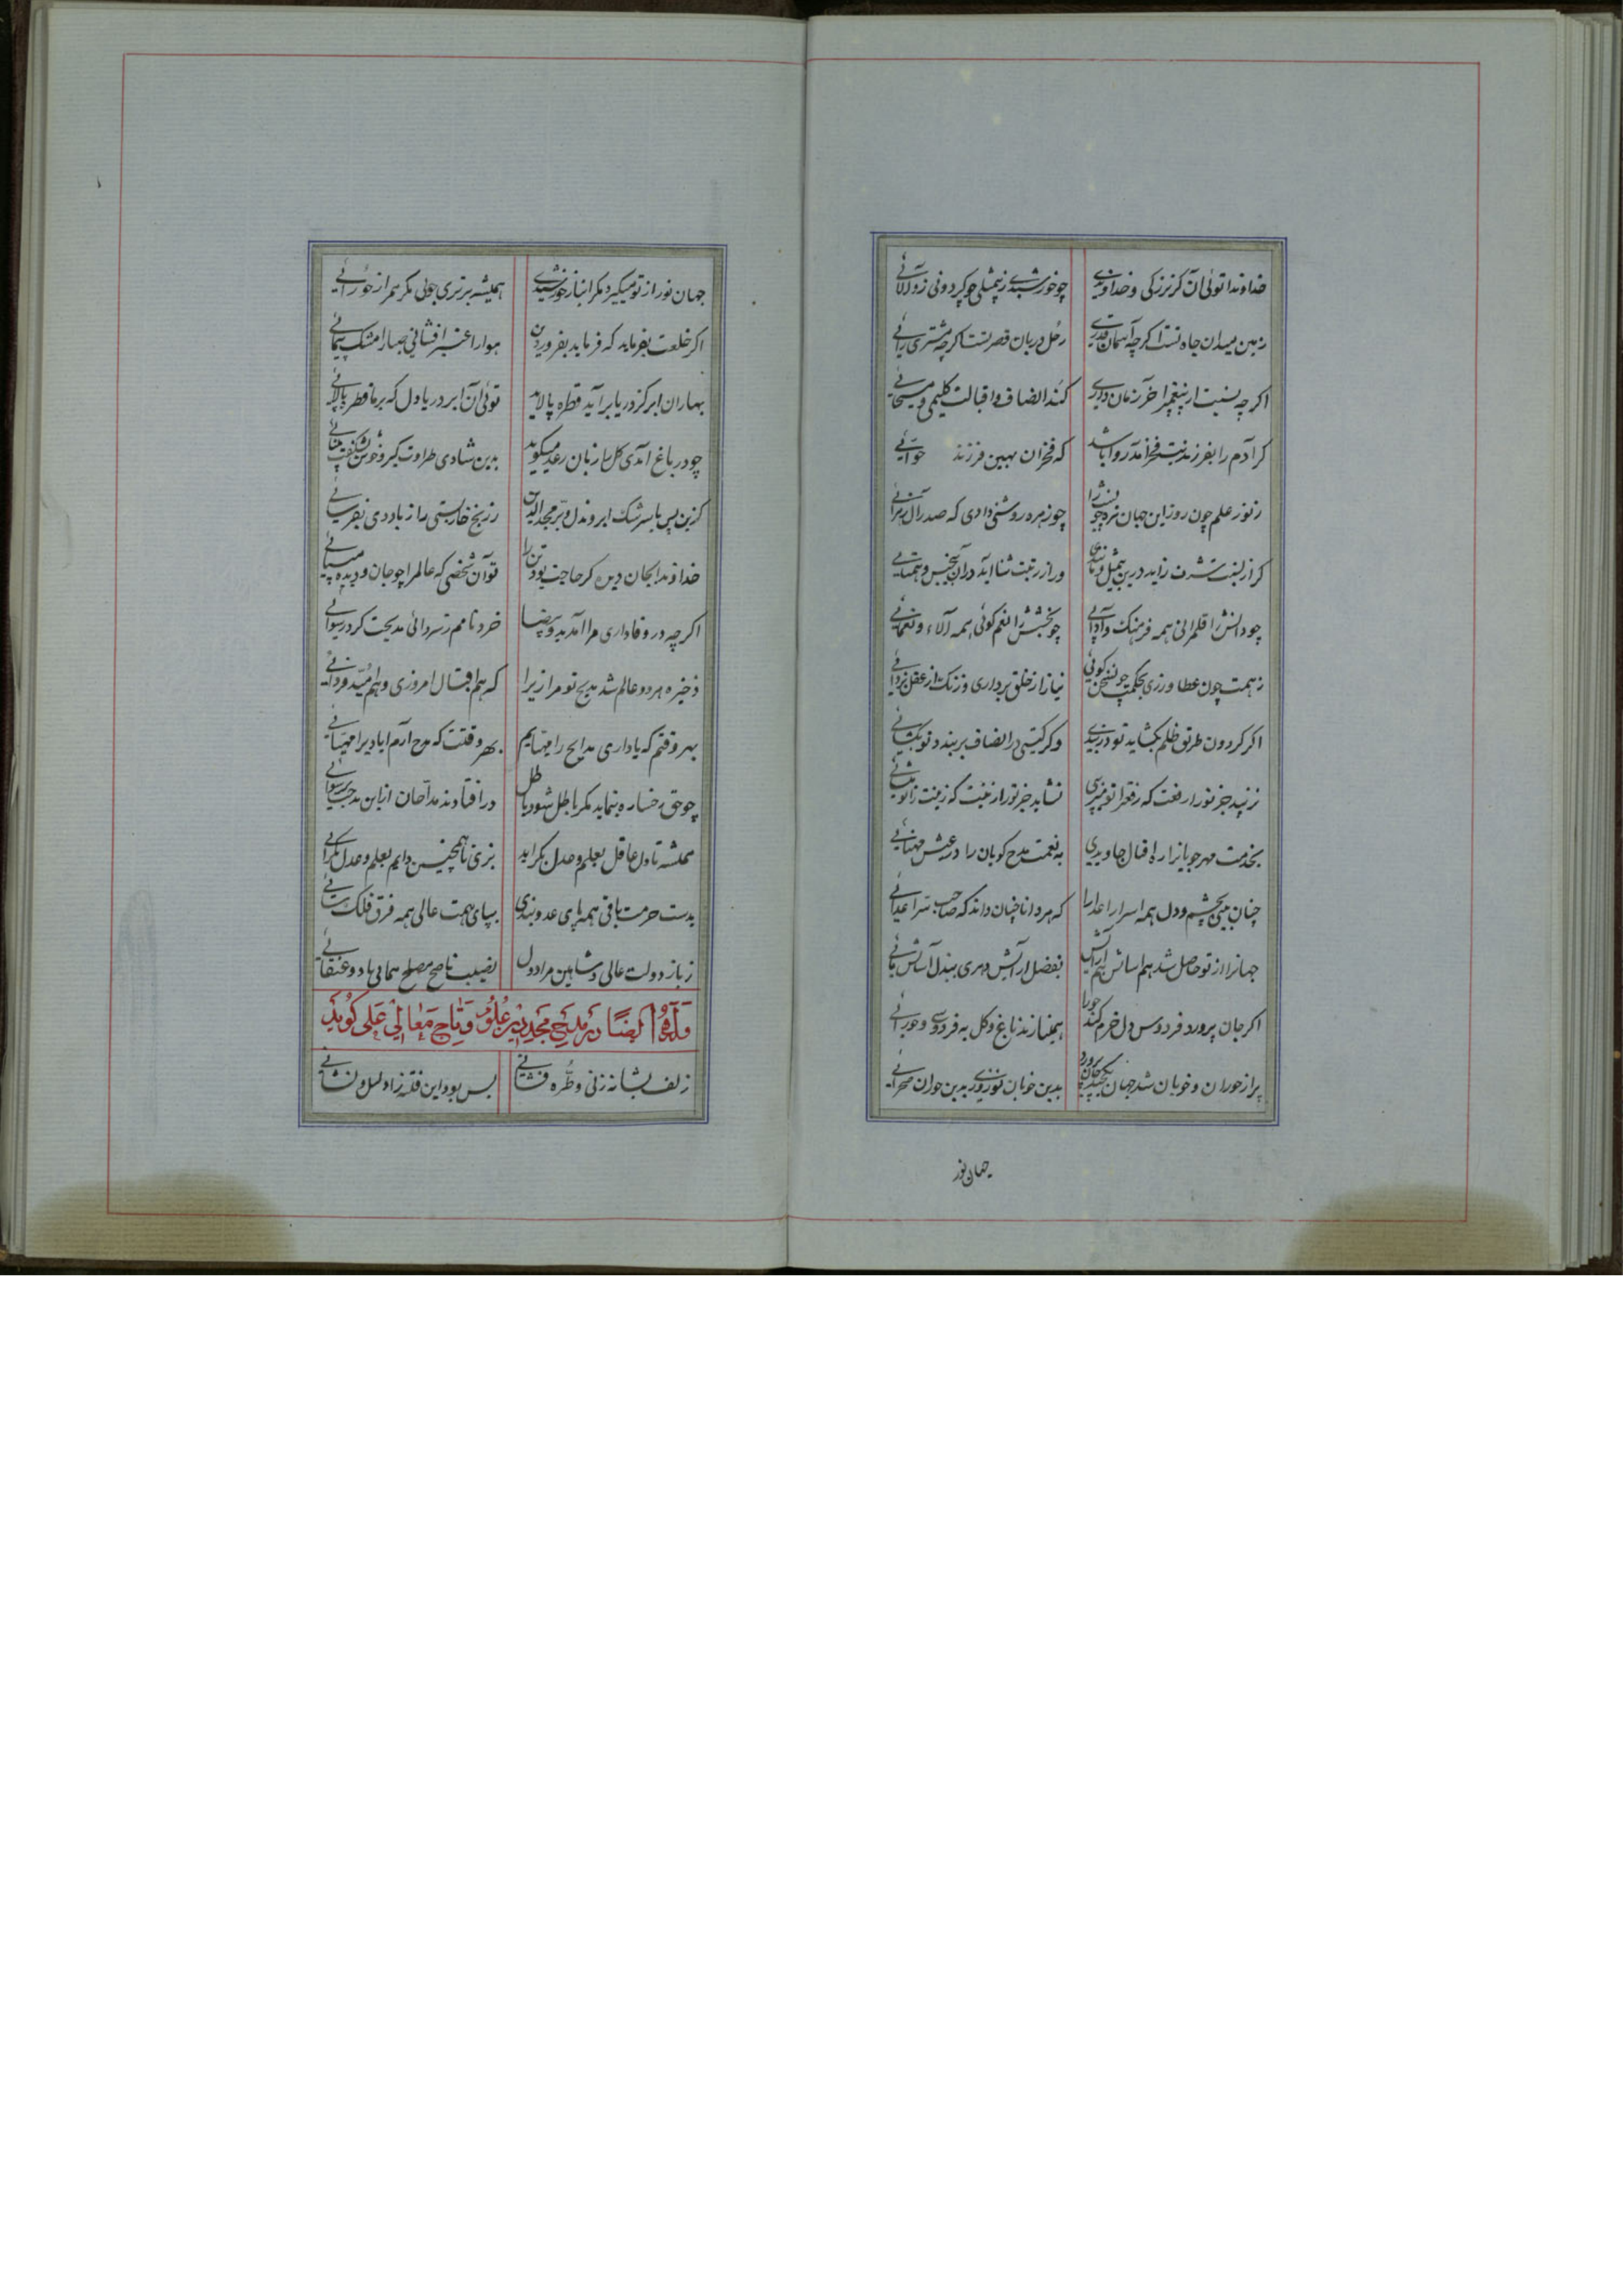 خداوندا توئی آن کز بزرکی و خداوندی چو خورشیدی ز بیمثلی چو کردونی ز والائی
زمین میدان جاه تست اکرچه آسمان قدری زحل دربان قصر تست اکرچه مشتری رائی
اکرچه نسبت از پیغمبر آخر زمان داری کند انصاف و اقبالت کلیمی و مسیحائی
کر آدم را بفرزندیت فخر آمد روا باشد که فخر آن بهین فرزند حوائی
ز نور علم چون روز این جهان تیره چو شب را چو زهره روشنی دادی که صدر آل زهرائی
کر از نسبت شرف زاید درین بیمثل و مانندی ور از رتبت ثنا آید در آن بیجنس و همتائی
چو دانش را قلم رانی همه فرهنک و آدابی چو بخشش را نعم کوئی همه آلاء و نعمائی
ز همت چون عطا ورزی بحکمت چون سخن کوئی نیاز از خلق برداری و زنک از عقل بزدائی
اکر کردون طریق ظلم بکشاید تو دربندی وکر کیتی در انصاف بربندد تو بکشائی
نزیبد جز تو را رفعت که رفعت را تو نشاید جز تو را زینت که زینت را تو
بخدمت مهرجویانرا ره اقبال جاویدی به نعمت مدح کویان را در عیش مهنائی
چنان بینی بچشم و دل همه اسرار اعدا را که هر دانا چنان داند که صاحب سر اعدائی
جهانرا از تو حاصل شد هم اسایش هم آرایش بفضل آرایش دهری ببذل آسایش مائی
اکر جان پرورد فردوس و دل خرم کند حورا همینازند باغ و کل به فردوسی و حورائی
پر از حوران و خوبان شد جهان بدین خوبان نوروزی بدین حوران صحرائی
جهان نور
جهان نور از تو میکیرد مکر انباز خورشیدی همیشه برتری جوئی مکر همراز جوزائی
اکر خلعت بفرماید که فرماید بفروردین هوا را عنبر افشانی صبا را مشک پیمائی
بهاران ابر کز دریا برآید قطره پالاید توئی آن ابر دریا دل که بر ما قطر پالائی
چو در باغ آمدی کل با زبان رعد میکوید بدین شادی طراوت کیر و خوش بشکفت
کزین پس با سرشک ابر و بذل و بر مجدالدین ز رنج خار رستی را ز باد دی نفرسائی
خداوندا بجان و دیده کر حاجت بود تن را تو آن شخصی که عالم را چو جان و دیده میبائی
اکرچه در وفاداری مرا آمد ید و بیضا خرد نامم ز سردائی مدیحت کرد رسوائی
ذخیره هر دو عالم شد مدیح تو مرا زیرا که هم اقبال امروزی و هم امید فردائی
بهر وقتم که یاد آری مدایح را مهیایم بهر وقتت که مدح آرم ایادیرا مهیائی
چو حق رخساره بنماید مکر باطل شود باطل در افتادند مداحان ازاین مدحت برسوائی
همیشه تا دل عاقل بعلم و عدل بکراید بزی تا همچنین دایم بعلم و عدل بکرائی
بدست حرمت باقی همه پای عدو بندی بپای همت عالی همه فرق فلک سائی
ز باز دولت عالی و شاهین مراد دل نصیب ناصح مصلح همائی باد و عنقائی
وله ایضا در مدیح مجد دین علو و تاج معالی علی کوید
زلف بشانه زنی و طره فشانی بس بود این فتنه زاد لیل و نشانی